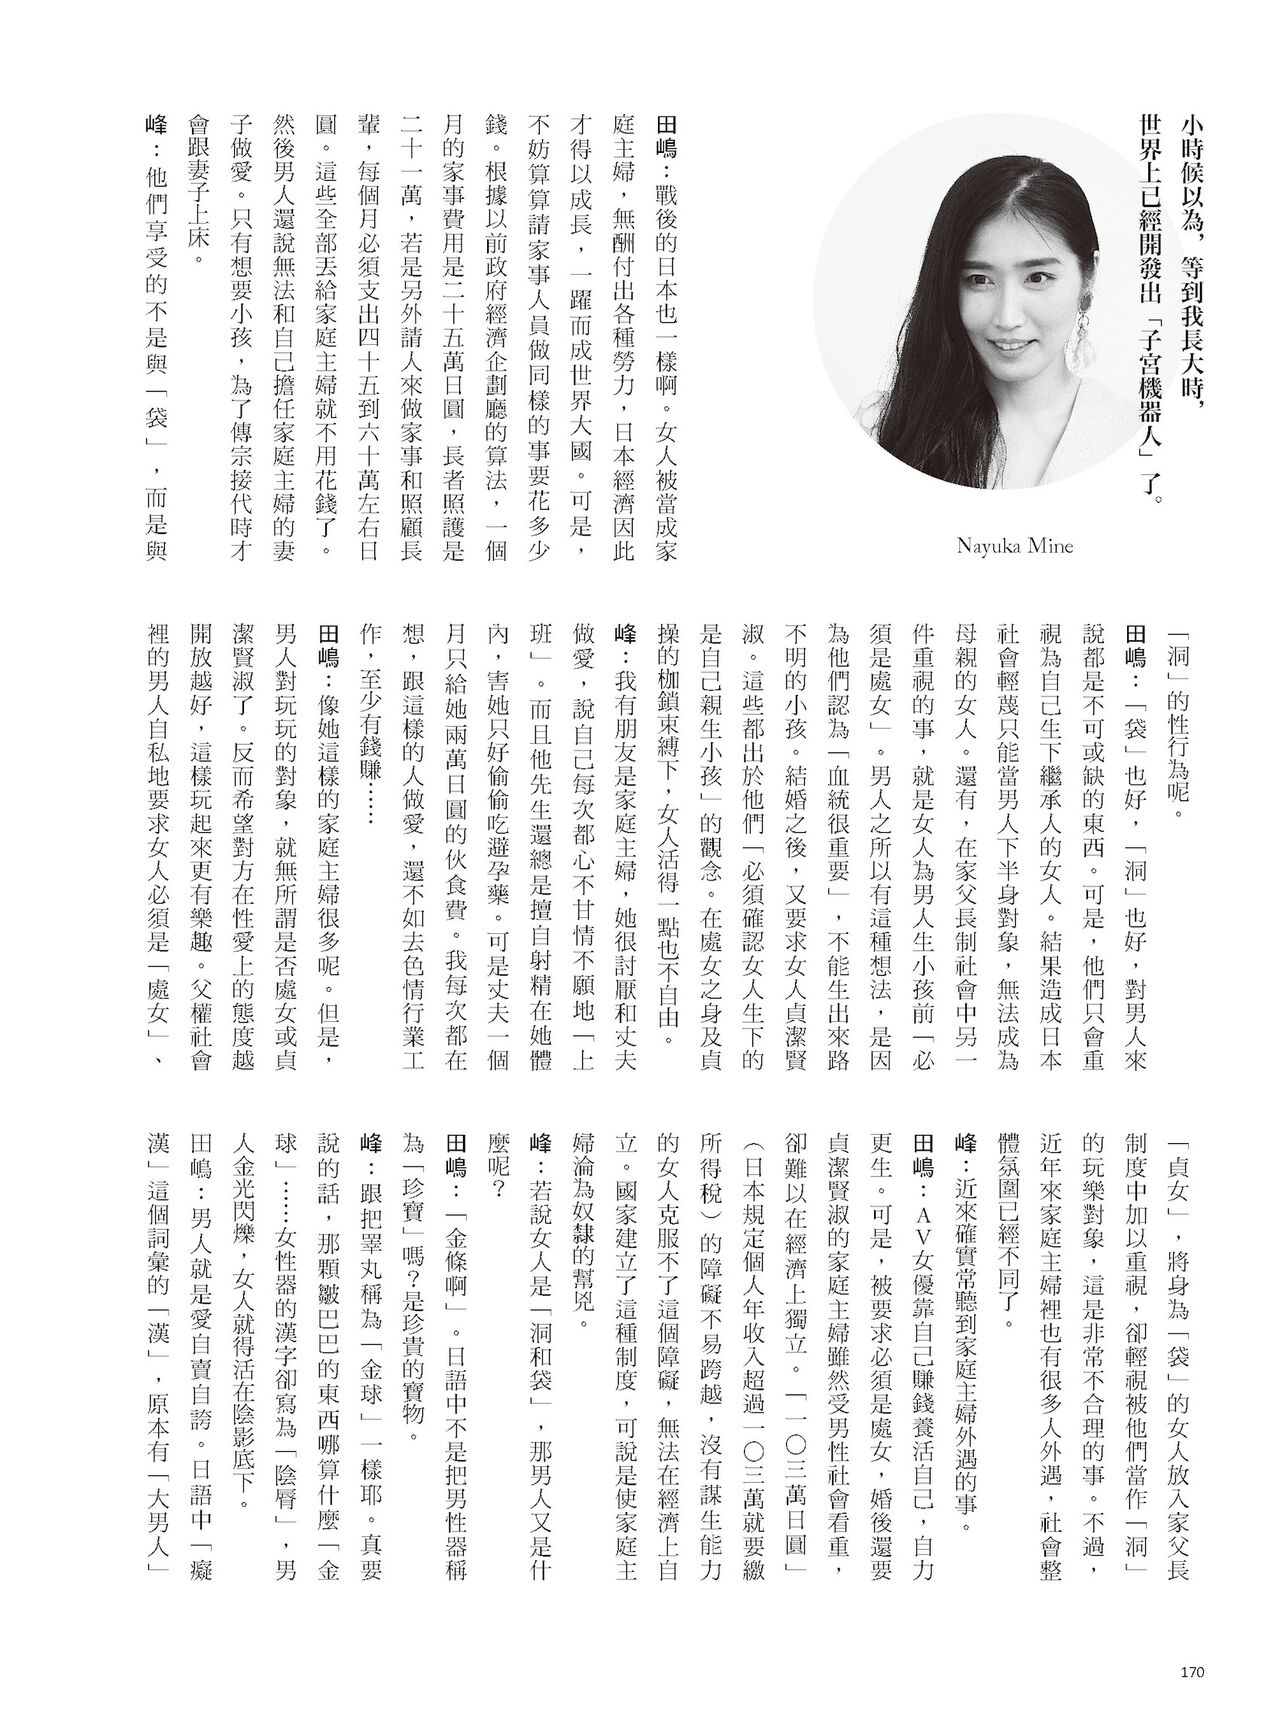 小時候以為，等到我長大時，
世界上已經開發出「子宮機器人」了。
Nayuka Mine
田嶋：戰後的日本也一樣啊。女人被當成家
庭主婦，無酬付出各種勞力，日本經濟因此
才得以成長，一躍而成世界大國。可是，
不妨算算請家事人員做同樣的事要花多少
錢。根據以前政府經濟企劃廳的算法，一個
月的家事費用是二十五萬日圓，長者照護是
二十一萬，若是另外請人來做家事和照顧長
輩，每個月必須支出四十五到六十萬左右日
圓。這些全部丟給家庭主婦就不用花錢了。
然後男人還說無法和自己擔任家庭主婦的妻
子做愛。只有想要小孩，為了傳宗接代時才
會跟妻子上床。
峰：他們享受的不是與「袋」，而是與
「洞」的性行為呢。
田嶋：「袋」也好，「洞」也好，對男人來
說都是不可或缺的東西。可是，他們只會重
視為自己生下繼承人的女人。結果造成日本
社會輕蔑只能當男人下半身對象，無法成為
母親的女人。還有，在家父長制社會中另一
件重視的事，就是女人為男人生小孩前「必
須是處女」。男人之所以有這種想法，是因
為他們認為「血統很重要」，不能生出來路
不明的小孩。結婚之後，又要求女人貞潔賢
淑。這些都出於他們「必須確認女人生下的
是自己親生小孩」的觀念。在處女之身及貞
操的枷鎖束縛下，女人活得一點也不自由。
峰：我有朋友是家庭主婦，她很討厭和丈夫
做愛，說自己每次都心不甘情不願地「上
班」。而且他先生還總是擅自射精在她體
內，害她只好偷偷吃避孕藥。可是丈夫一個
月只給她兩萬日圓的伙食費。我每次都在
想，跟這樣的人做愛，還不如去色情行業工
作，至少有錢賺……
田嶋：像她這樣的家庭主婦很多呢。但是，
男人對玩玩的對象，就無所謂是否處女或貞
潔賢淑了。反而希望對方在性愛上的態度越
開放越好，這樣玩起來更有樂趣。父權社會
裡的男人自私地要求女人必須是「處女」、
「貞女」，將身為「袋」的女人放入家父長
制度中加以重視，卻輕視被他們當作「洞」
的玩樂對象，這是非常不合理的事。不過，
近年來家庭主婦裡也有很多人外遇，社會整
體氛圍已經不同了。
峰：近來確實常聽到家庭主婦外遇的事。
田嶋：ＡＶ女優靠自己賺錢養活自己，自力
更生。可是，被要求必須是處女，婚後還要
貞潔賢淑的家庭主婦雖然受男性社會看重，
卻難以在經濟上獨立。「一〇三萬日圓」
（日本規定個人年收入超過一〇三萬就要繳
所得稅）的障礙不易跨越，沒有謀生能力
的女人克服不了這個障礙，無法在經濟上自
立。國家建立了這種制度，可說是使家庭主
婦淪為奴隸的幫兇。
峰：若說女人是「洞和袋」，那男人又是什
麼呢？
田嶋：「金條啊」。日語中不是把男性器稱
為「珍寶」嗎？是珍貴的寶物。
峰：跟把睪丸稱為「金球」一樣耶。真要
說的話，那顆皺巴巴的東西哪算什麼「金
球」……女性器的漢字卻寫為「陰脣」，男
人金光閃爍，女人就得活在陰影底下。
田嶋：男人就是愛自賣自誇。日語中「癡
漢」這個詞彙的「漢」，原本有「大男人」
170